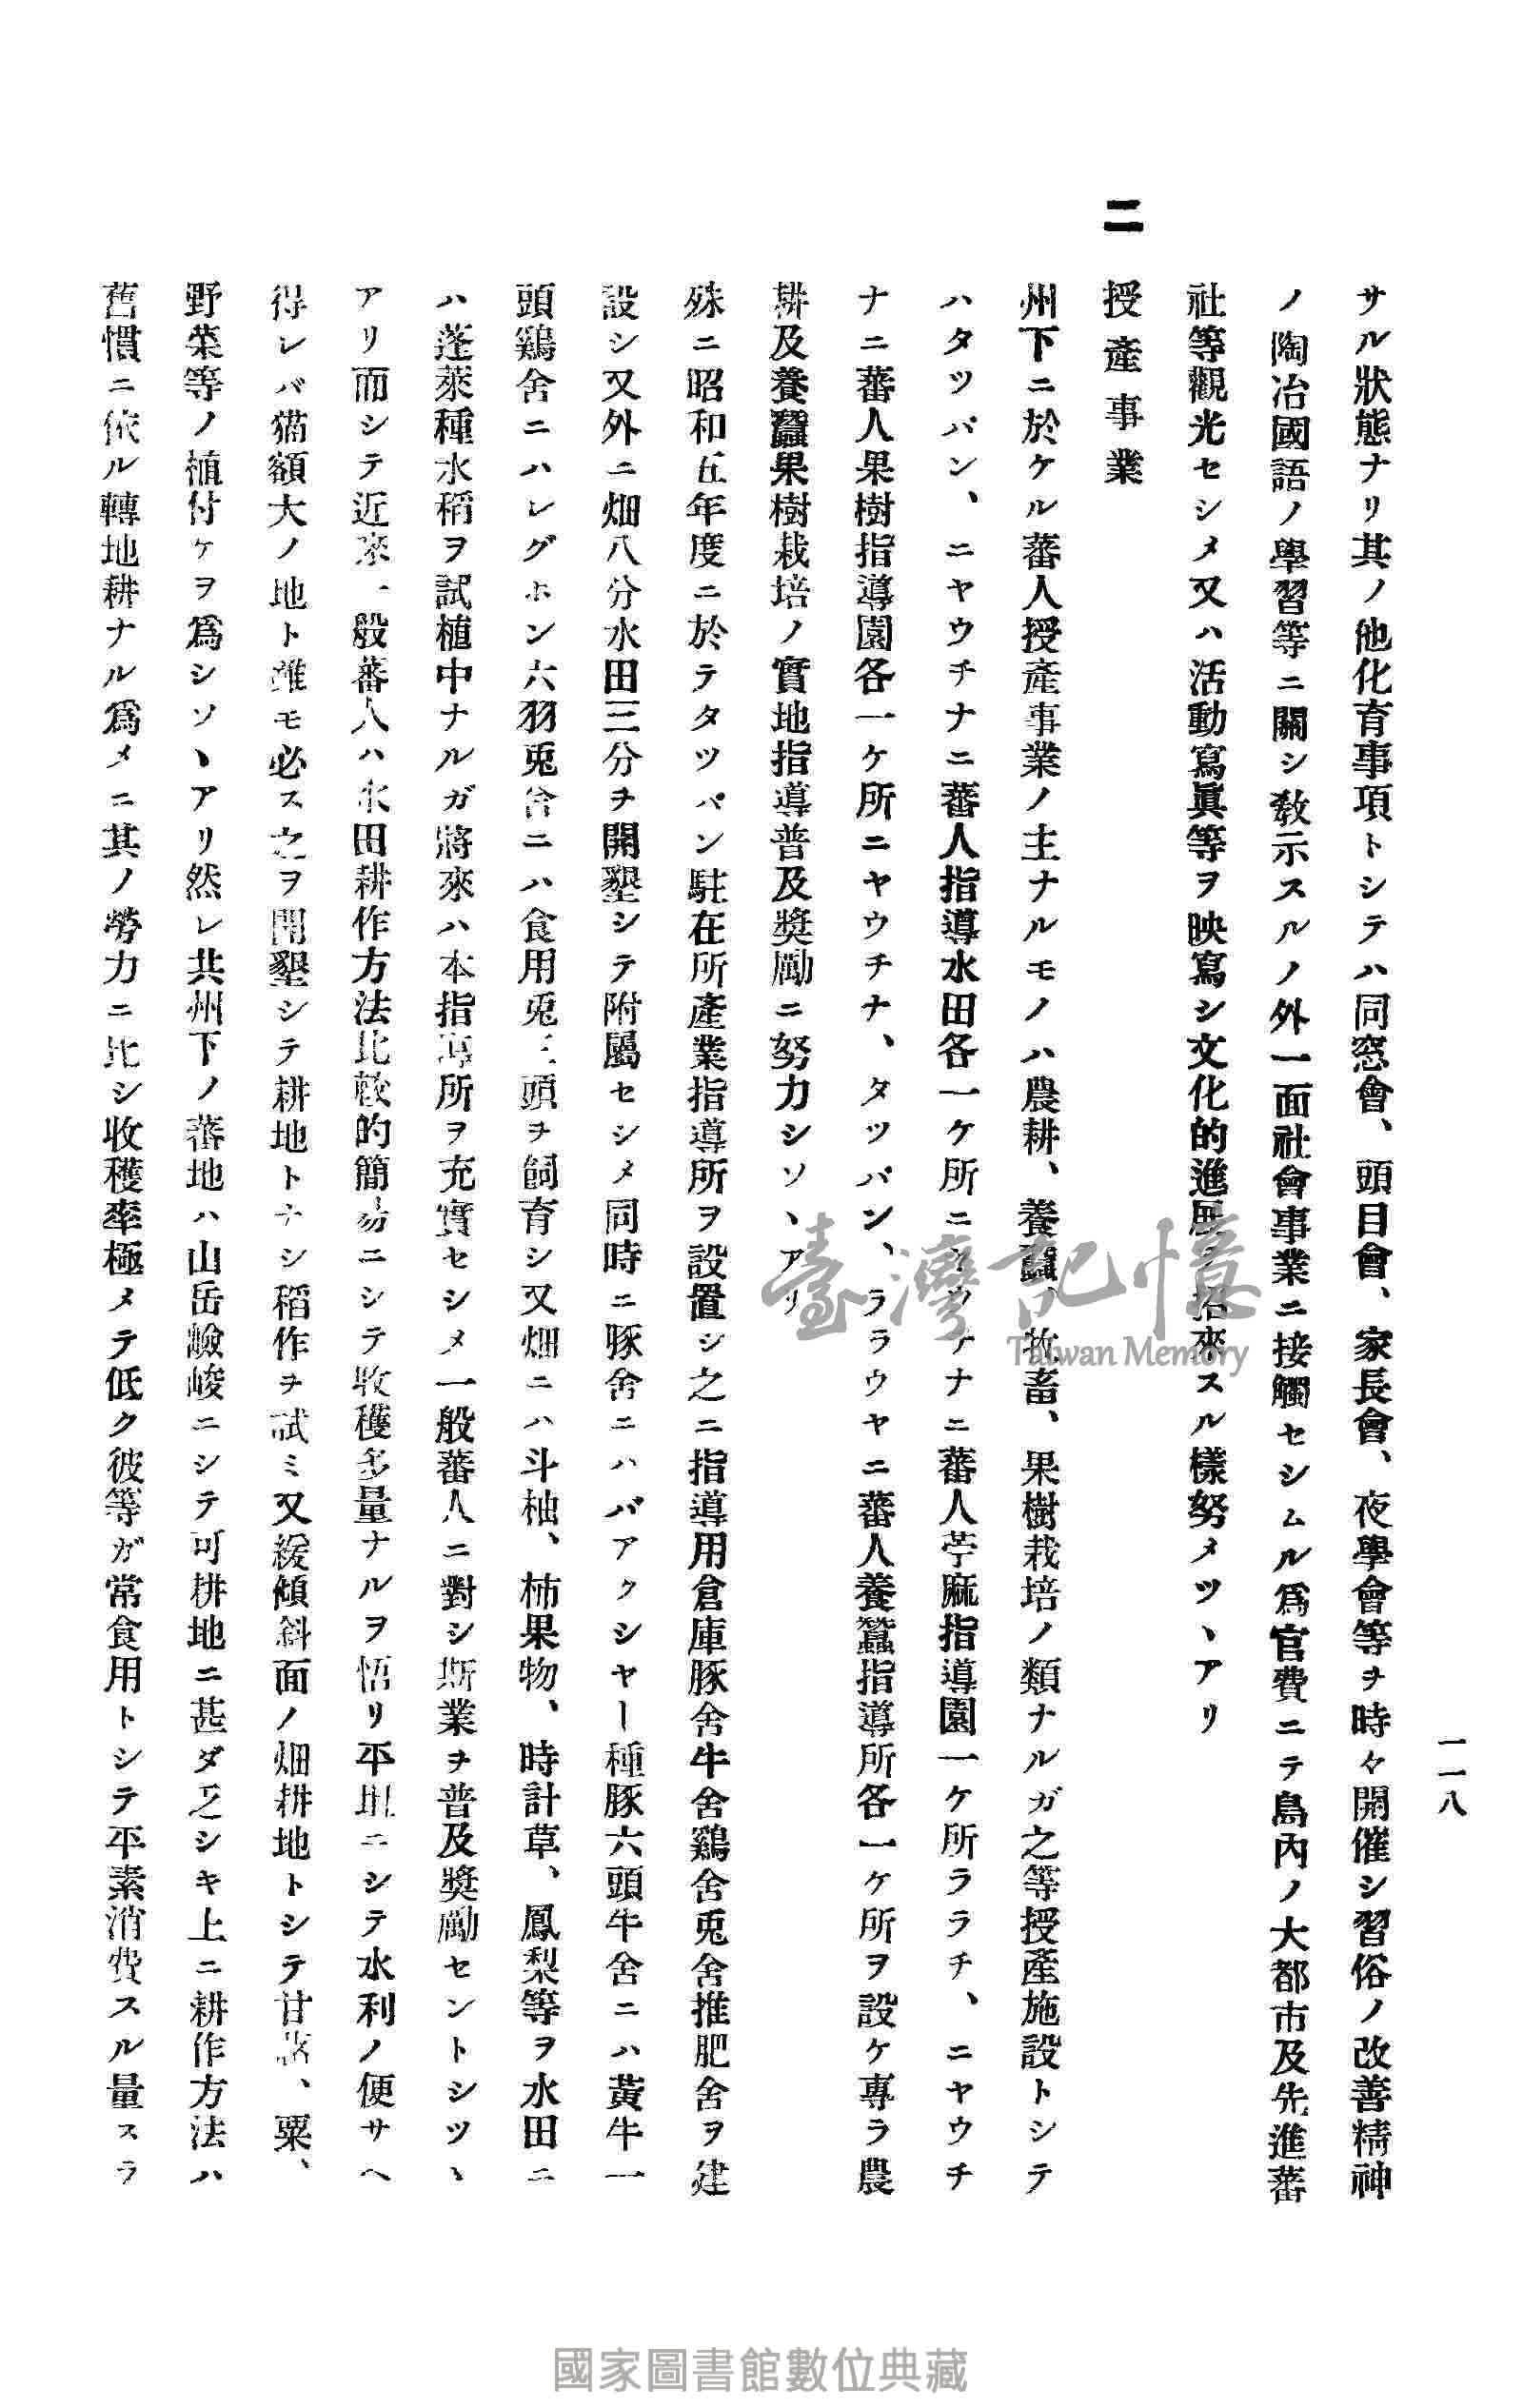 一一八
サル狀態ナリ其ノ他化育事項トシテハ同窓會、頭目會、家長會、夜學會等ヲ時々開催シ習俗ノ改善精神
ノ陶冶國語ノ學習等ニ關シ敎示スルノ外一面社會事業ニ接觸セシムル爲官費ニテ島內ノ大都市及先進蕃
社等觀光セシメ又ハ活動寫眞等ヲ映寫シ文化的進展ヲ招來スル樣努メツヽアリ
二 授產事業
州下ニ於ケル蕃人授產事業ノ主ナルモノハ農耕、養蠶、牧畜、果樹栽培ノ類ナルガ之等授產施設トシテ
ハタツバン、ニヤウチナニ蕃人指導水田各一ケ所ニヤウチナニ蕃人苧麻指導園一ケ所ララチ、ニヤウチ
ナニ蕃人果樹指導園各一ケ所ニヤウチナ、タツバン、ララウヤニ蕃人養蠶指導所各一ケ所ヲ設ケ專ラ農
耕及養蠶果樹栽培ノ實地指導普及獎勵ニ努力シツヽアリ
殊ニ昭和五年度ニ於テタツパン駐在所產業指導所ヲ設置シ之ニ指導用倉庫豚舍牛舍鷄舍兎舍推肥舍ヲ建
設シ又外ニ畑八分水田三分ヲ開墾シテ附屬セシメ同時ニ豚舍ニハバアクシヤー種豚六頭牛舍ニハ黃牛一
頭鷄舍ニハレグホン六羽兎舍ニハ食用兎三頭ヲ飼育シ又畑ニハ斗柚、柿果物、時計草、鳳梨等ヲ水田ニ
ハ蓬萊種水稻ヲ試植中ナルガ將來ハ本指導所ヲ充實セシメ一般蕃人ニ對シ斯業ヲ普及獎勵セントシツヽ
アリ而シテ近來一般蕃人ハ水田耕作方法比較的簡易ニシテ收穫多量ナルヲ悟リ平坦ニシテ水利ノ便サヘ
得レバ猫額大ノ地ト雖モ必ス之ヲ開墾シテ耕地トナシ稻作ヲ試ミ又緩傾斜面ノ畑耕地トシテ甘藷、粟、
野菜等ノ植付ケヲ爲シツヽアリ然レ共州下ノ蕃地ハ山岳嶮峻ニシテ可耕地ニ甚ダ乏シキ上ニ耕作方法ハ
舊慣ニ依ル轉地耕ナル爲メニ其ノ勞力ニ比シ收穫率極メテ低ク彼等ガ常食用トシテ平素消費スル量スラ
臺灣記憶
Taiwan Memory
國家圖書館數位典藏